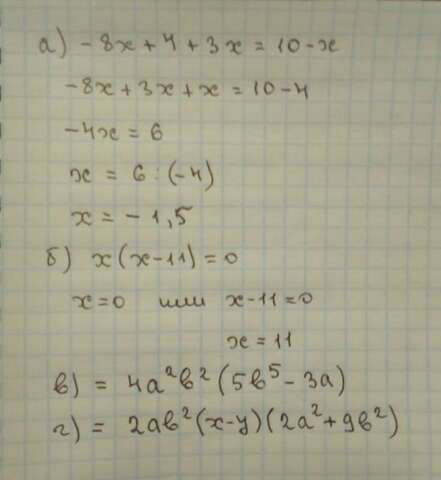 а) -8x+4+3x=10-x
-8x+3x+x=10-4
-4x=6
x=6:(-4)
x=-1,5
б) x(x-11)=0
x=0 или x-11=0
x=11
в) = 4a²b²(5b⁵-3a)
г) = 2ab²(x-y)(2a²+9b²)